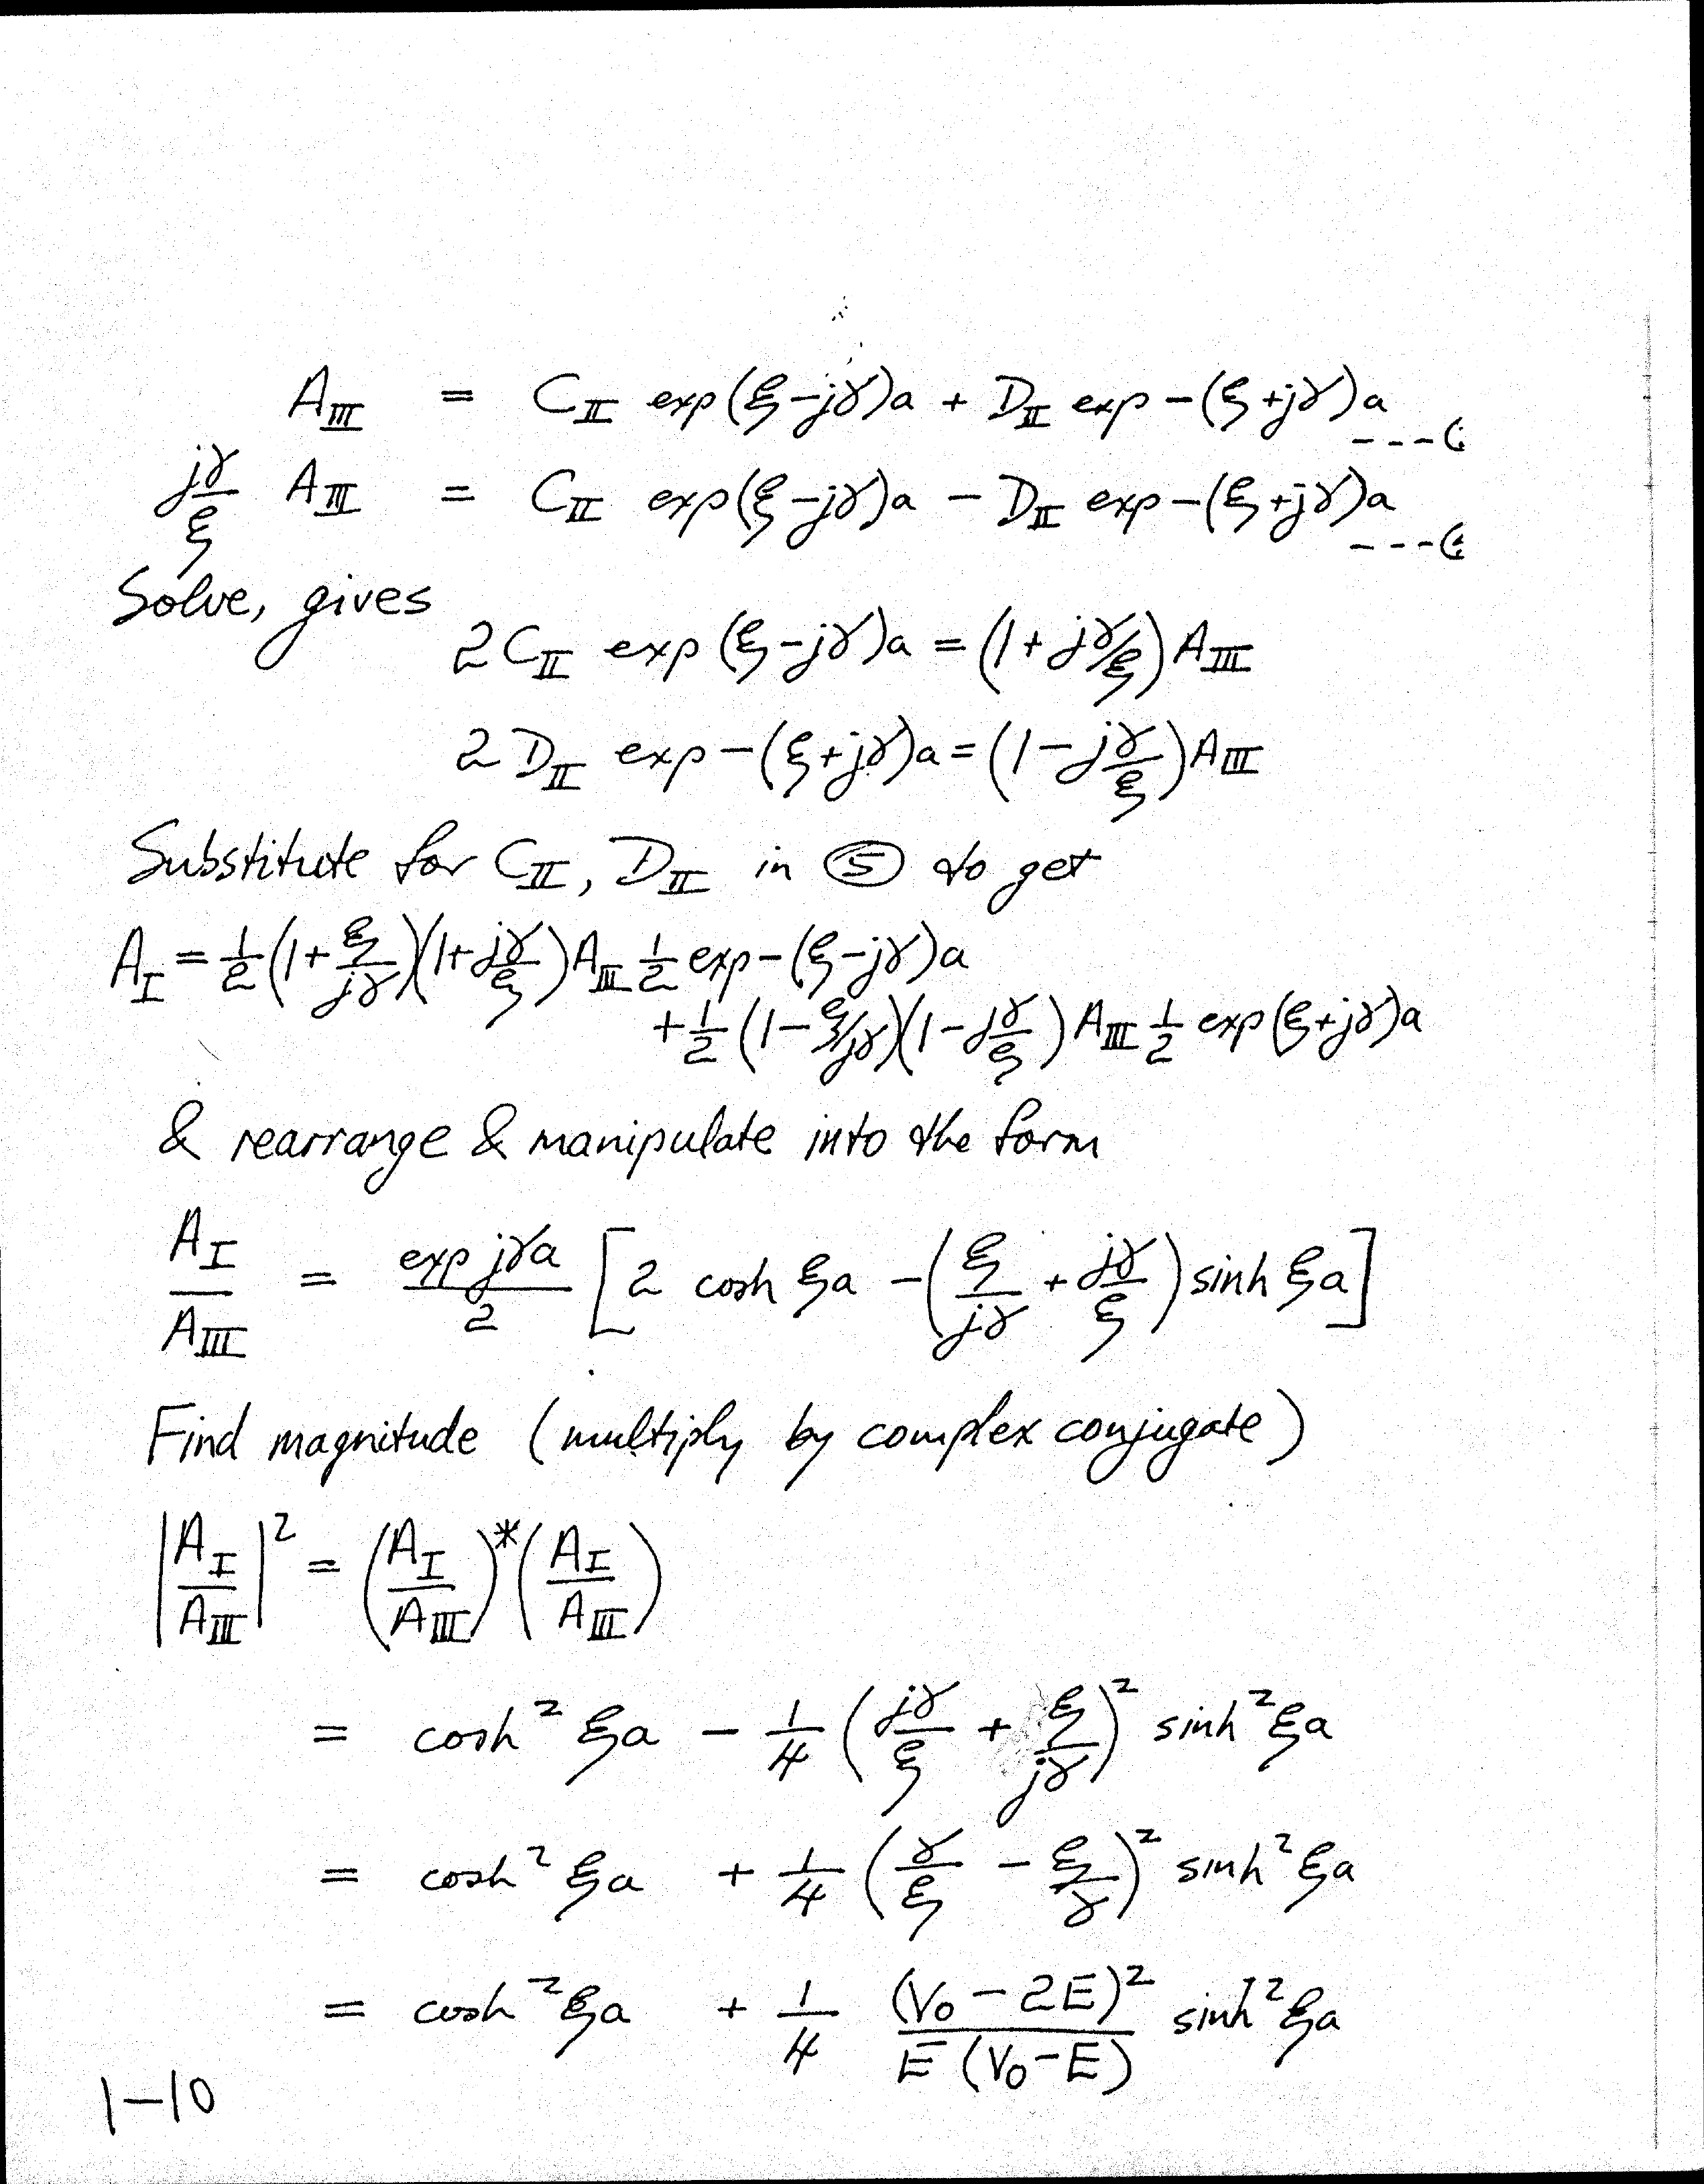 A_III = C_II exp(ξ-jγ)a + D_II exp-(ξ+jγ)a ---(
jγ/ξ A_III = C_II exp(ξ-jγ)a - D_II exp-(ξ+jγ)a ---(
Solve, gives
2C_II exp(ξ-jγ)a = (1+jγ/ξ)A_III
2D_II exp-(ξ+jγ)a = (1-jγ/ξ)A_III
Substitute for C_II, D_II in ⑤ to get
A_I = 1/2(1+ξ/jγ)(1+jγ/ξ)A_III 1/2 exp-(ξ-jγ)a
+1/2(1-ξ/jγ)(1-jγ/ξ)A_III 1/2 exp(ξ+jγ)a
& rearrange & manipulate into the form
A_I/A_III = exp jγa/2 [2 cosh ξa -(ξ/jγ + jγ/ξ) sinh ξa]
Find magnitude (multiply by complex conjugate)
|A_I/A_III|² = (A_I/A_III)*(A_I/A_III)
= cosh² ξa - 1/4 (jγ/ξ + ξ/jγ)² sinh² ξa
= cosh² ξa + 1/4 (γ/ξ - ξ/γ)² sinh² ξa
= cosh² ξa + 1/4 (V₀-2E)²/E(V₀-E) sinh² ξa
1-10